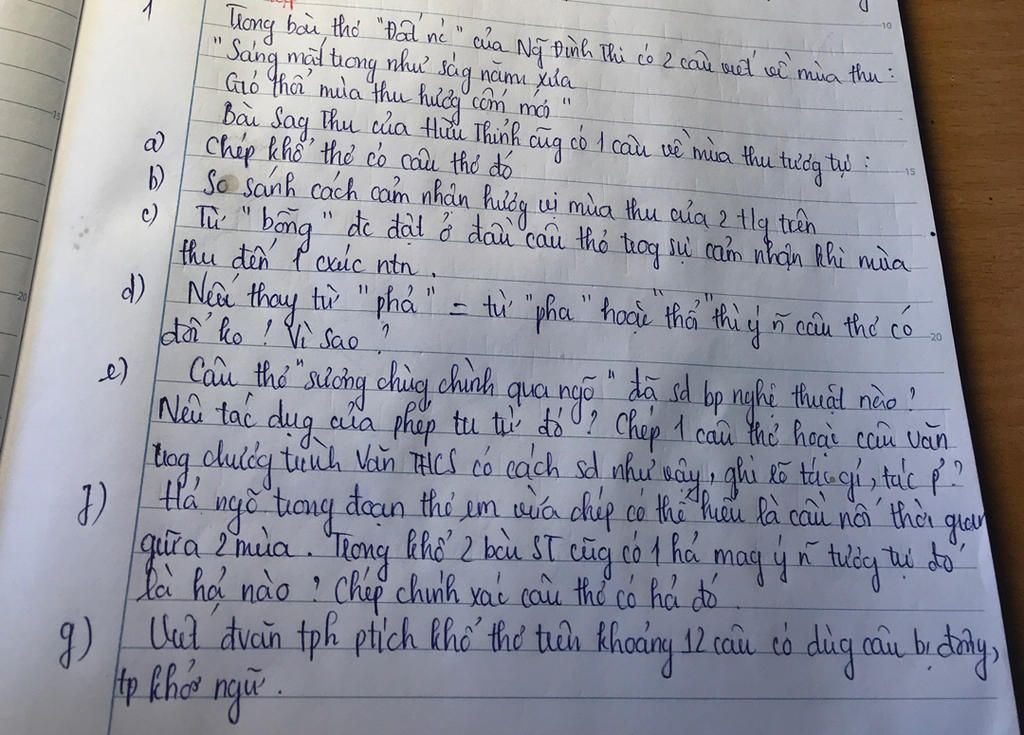 1 Trong bài thơ "Đất nc" của Ng̃ Đình Thi có 2 câu viết về mùa thu :
" Sáng mát trong như ság năm xưa
Gió thổi mùa thu hương cốm mới "
Bài Sag Thu của Hữu Thỉnh cũg có 1 câu về mùa thu tươg tự :
a) Chép khổ thơ có câu thơ đó
b) So sánh cách cảm nhận hươg vị mùa thu của 2 t/g trên
c) Từ " bỗng " đc đặt ở đầu câu thơ trog sự cảm nhận khi mùa
thu đến 1 cxúc ntn .
d) Nếu thay từ "phả" = từ "pha" hoặc "thổi" thì ý ñ câu thơ có
đổi ko ! Vì sao ?
e) Câu thơ "sương chùg chình qua ngõ" đã sd bp nghệ thuật nào ?
Nêu tác dụg của phép tu từ đó ? Chép 1 câu thơ hoặc câu văn
trog chươg trình Văn THCS có cách sd như vậy, ghi rõ tác gỉ, tác p̉ ?
f) Hả ngõ trong đoạn thơ em vừa chép có thể hiểu là cầu nối thời gian
giữa 2 mùa . Trong khổ 2 bài ST cũg có 1 hả mag ý ñ tươg tự đó
là hả nào ? Chép chính xác câu thơ có hả đó .
g) Viết đvăn tph ptích khổ thơ trên khoảng 12 câu có dùg câu bị động,
tp khởi ngữ .